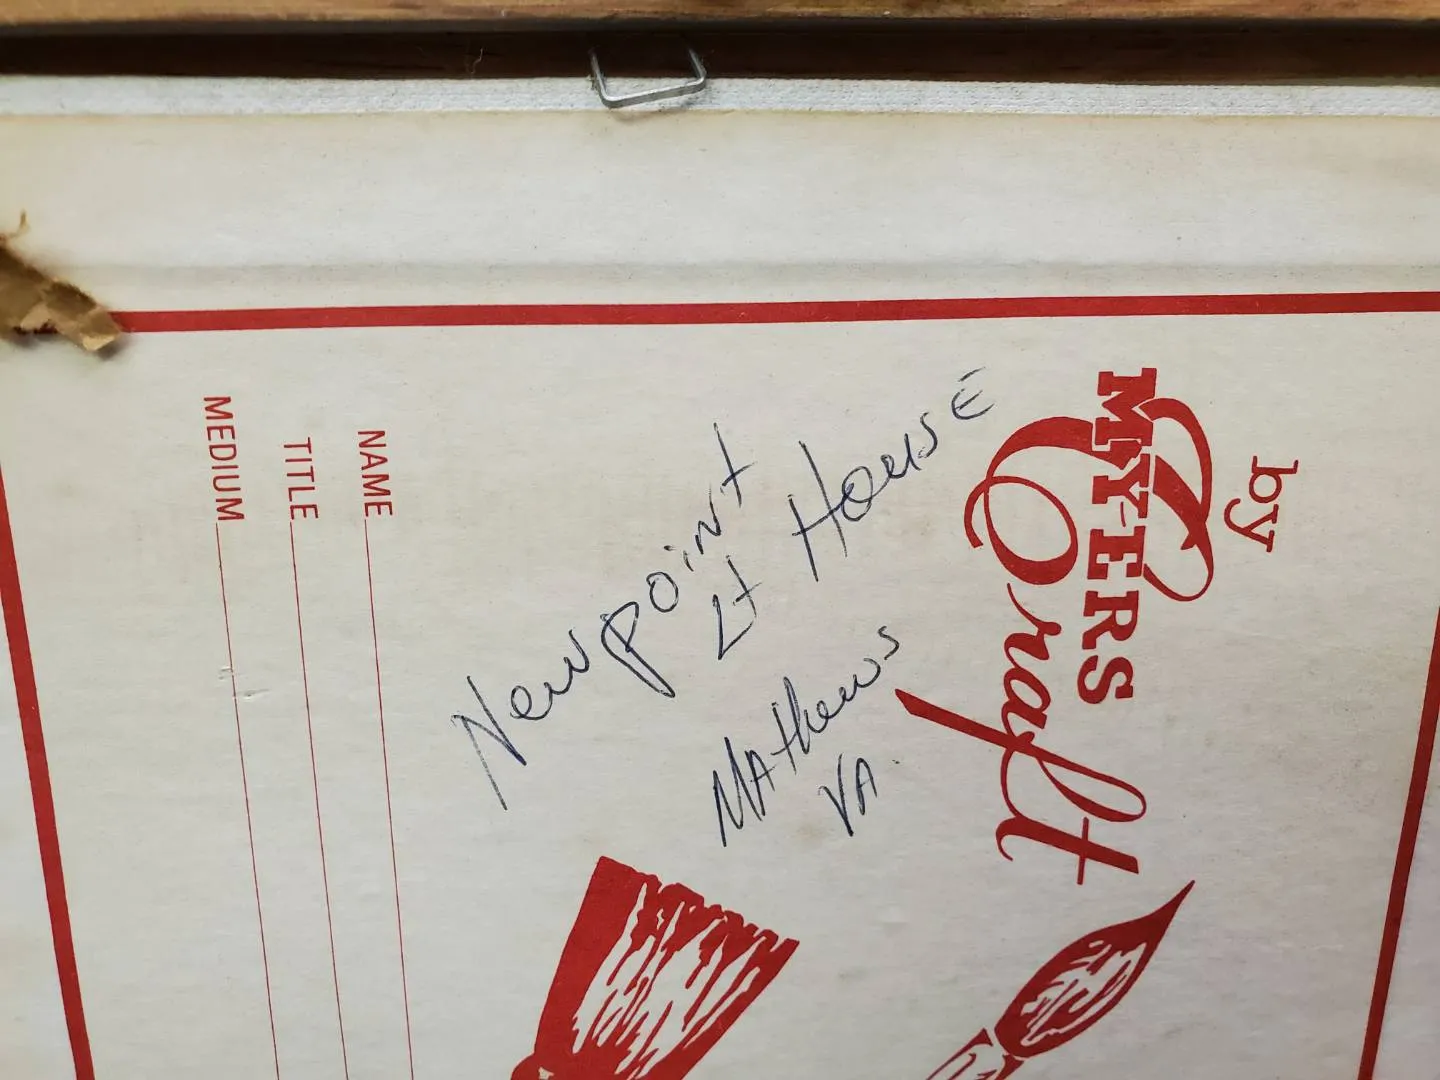 by
MYERS
Craft
Newpoint
Lt House
Mathews
VA.
NAME
TITLE
MEDIUM